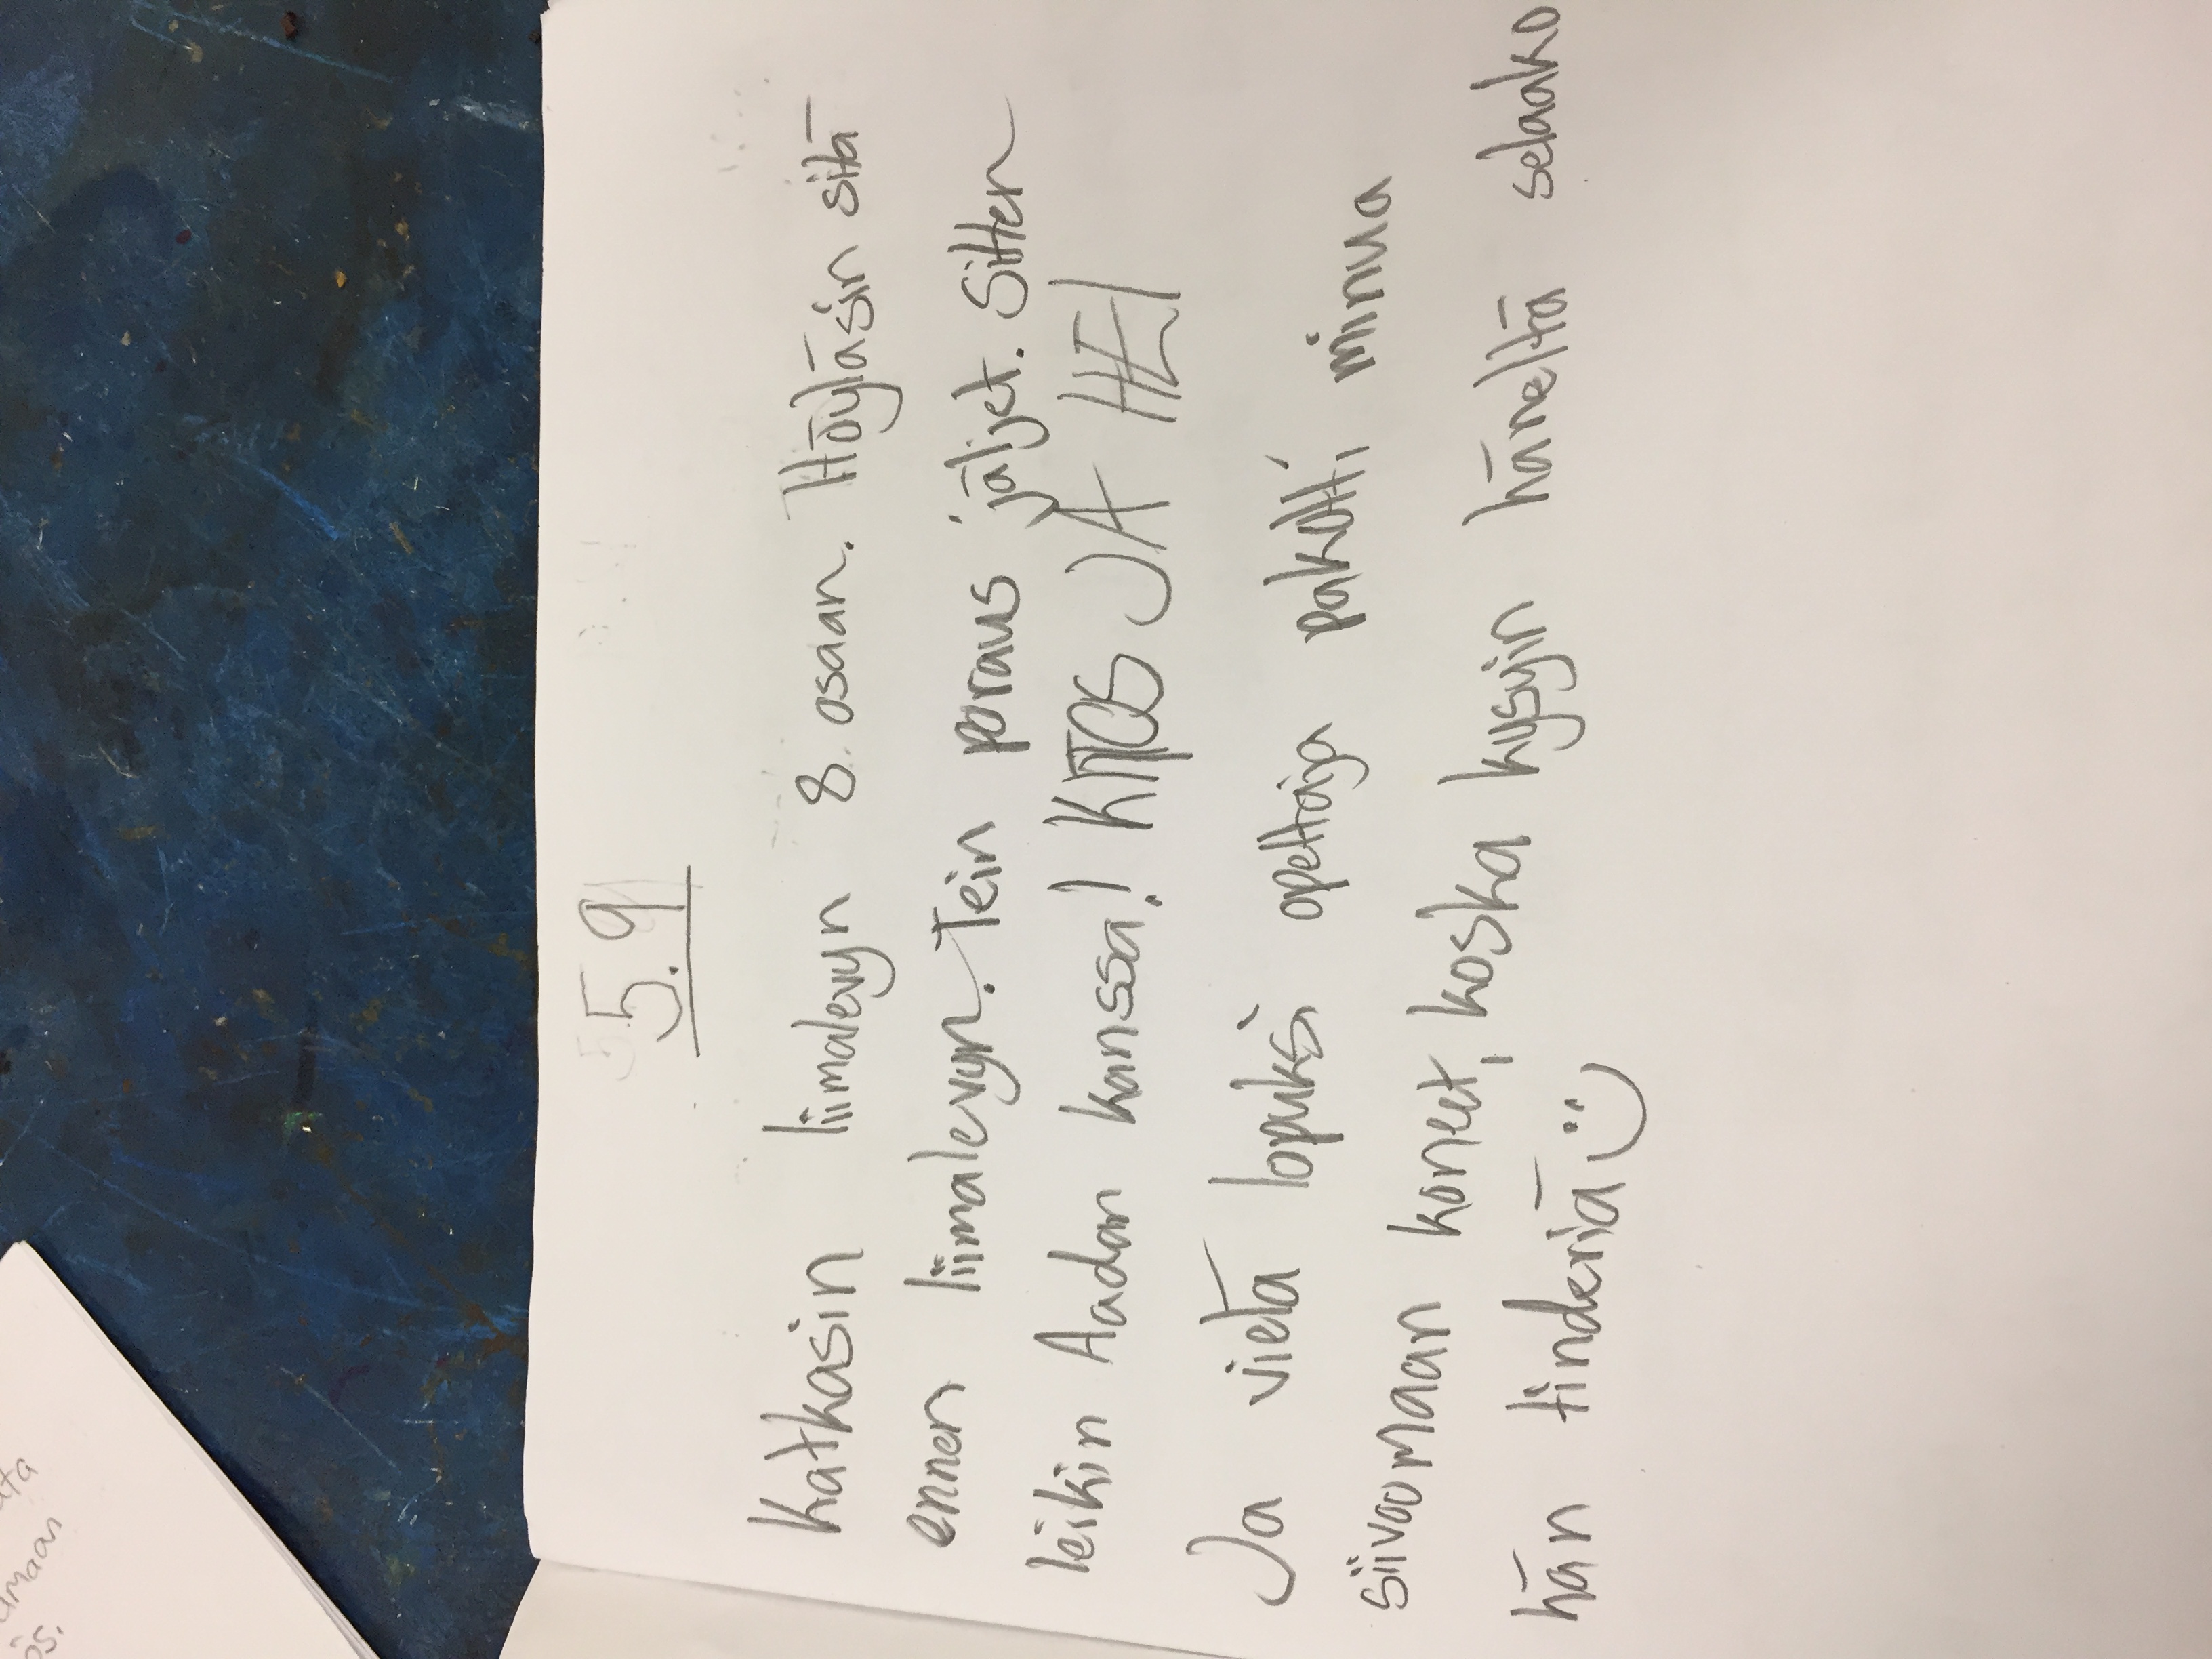 5.9
Katkasin liimalevyn 8 osaan. Höyläsin sitä
ennen liimalevyn. Tein poraus jäljet. Sitten
leikin Aadan kanssa! KIITOS JA HEI
Ja vielä lopuksi opettaja pakotti minua
siivoomaan koneet, koska kysyin häneltä selaako
hän tinderiä :)